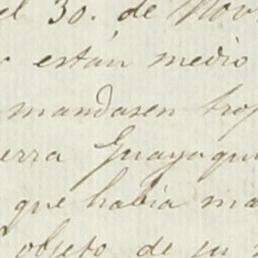 el 30. de Nov
están medio
mandasen trop
erra Guayaqui
que había ma
objeto de su